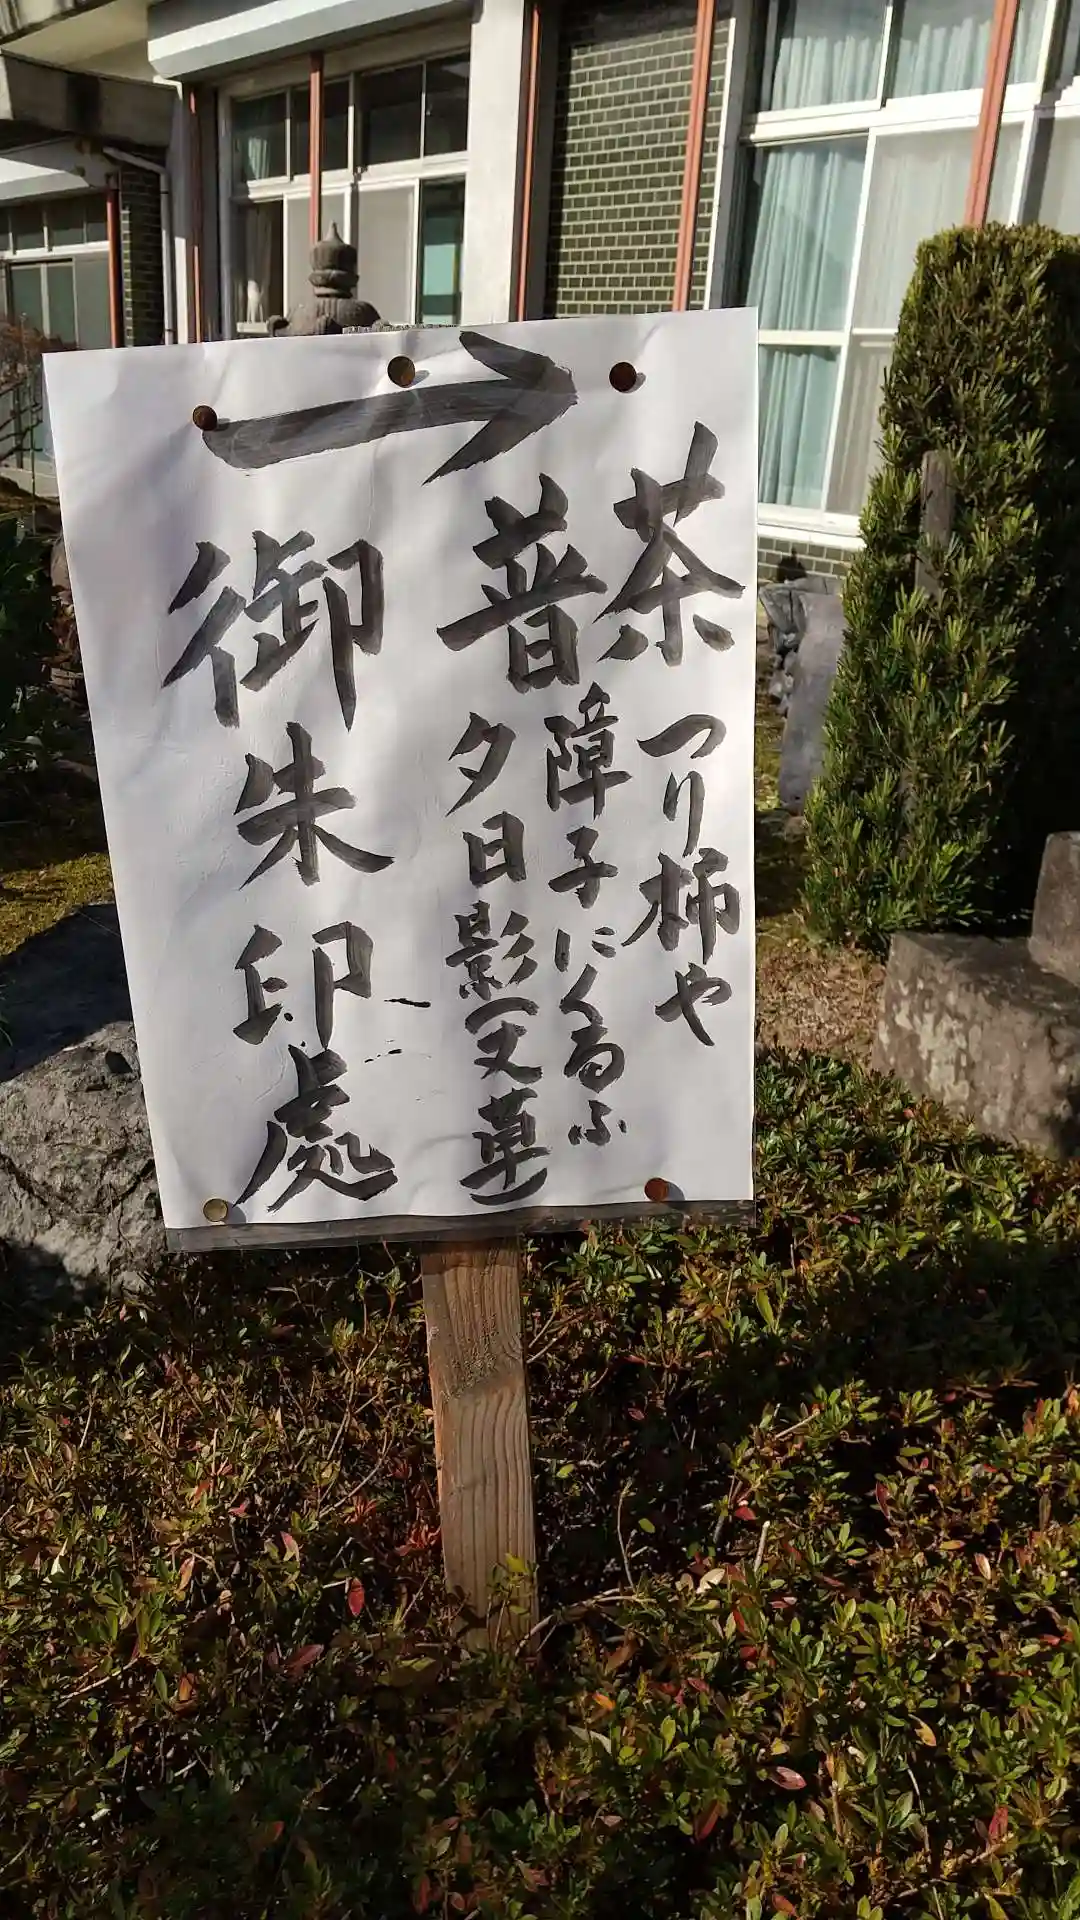 →
茶つり柿や
普障子にくるふ
夕日影(丈草)
御朱印處